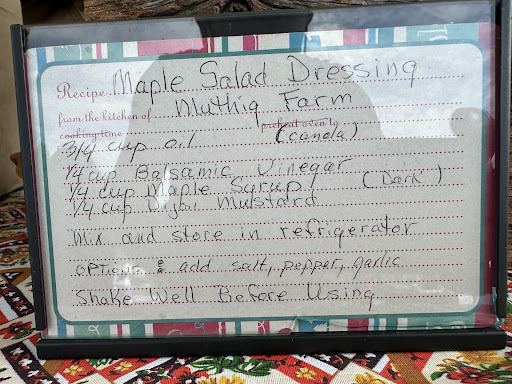 Recipe Maple Salad Dressing
from the kitchen of Nuthig Farm
cooking time preheat oven to
3/4 cup oil (canola)
1/4 cup Balsamic Vinegar
1/4 cup Maple Syrup (Dark)
1/4 cup Dijon Mustard
Mix and store in refrigerator
OPTIONS: add salt, pepper, garlic
Shake Well Before Using